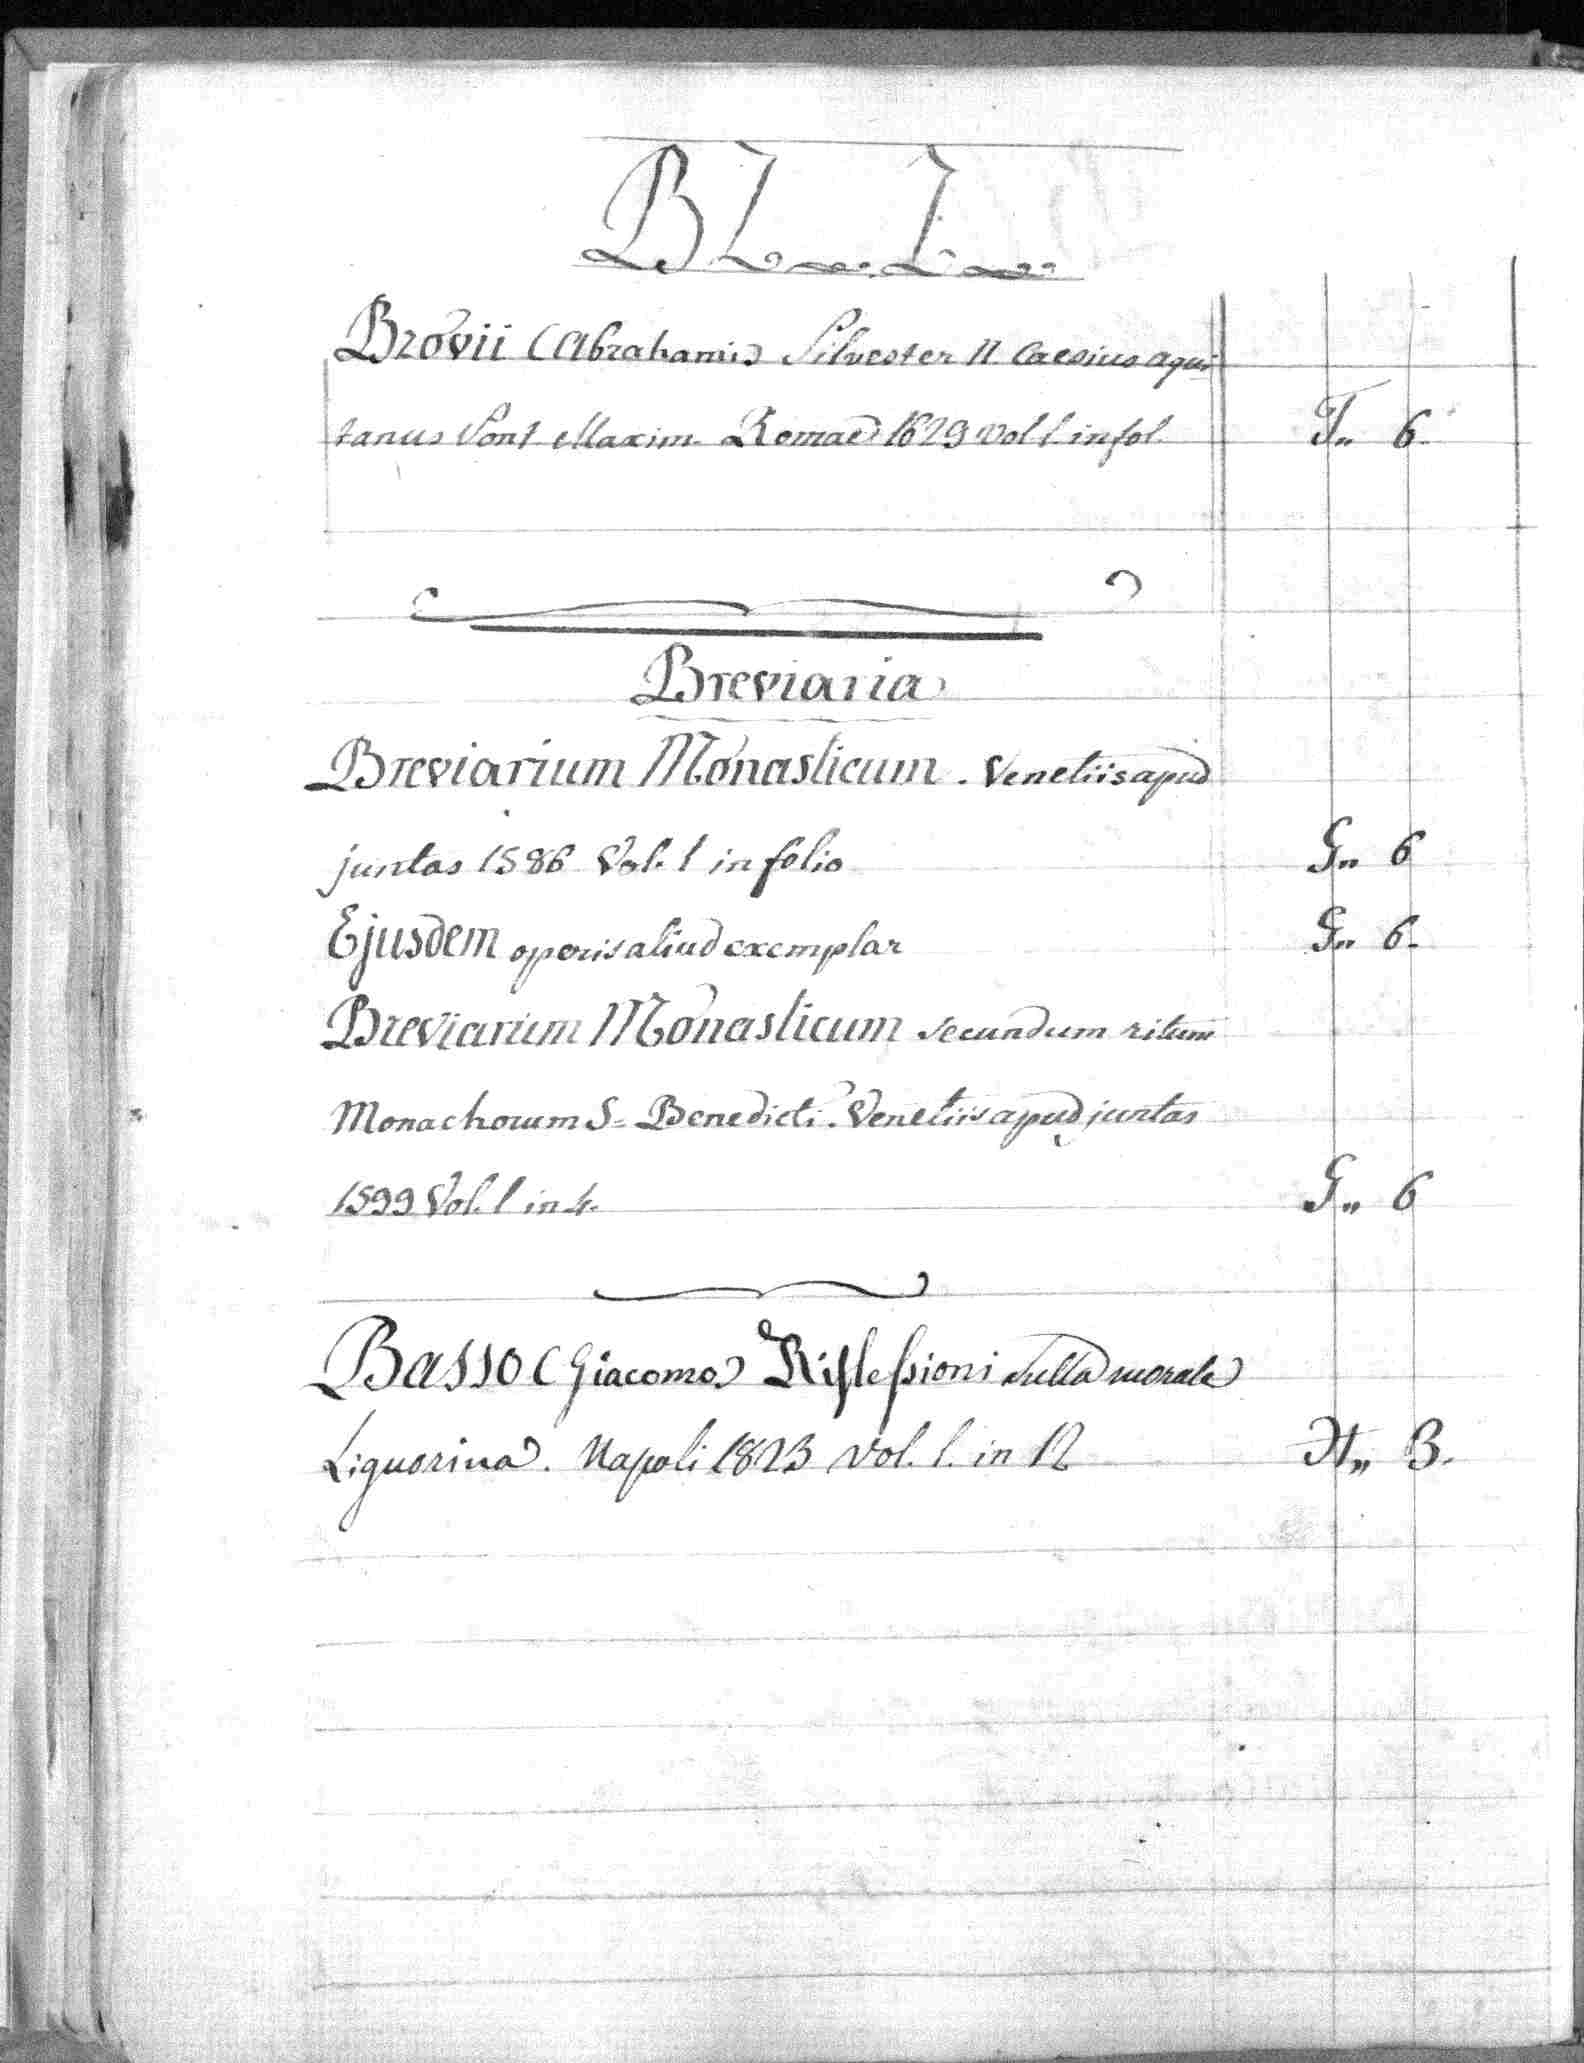 BZ.. Z..
Brovii (Abrahami) Silvester II Caesius aqui
tanus Pont Maxim. Romae 1629 vol 1. in fol. T„ 6.
Breviaria
Breviarium Monasticum. Venetiis apud
juntas 1586 Vol. 1 in folio G„ 6
Ejusdem operis aliud exemplar G„ 6.
Breviarium Monasticum secundum ritum
Monachorum S= Benedicti. Venetiis apud juntas
1599 Vol. 1 in 4. G„ 6
Basso (Giacomo) Riflessioni sulla morale
Liguorina. Napoli 1823 Vol. 1. in 12 H„ 3.